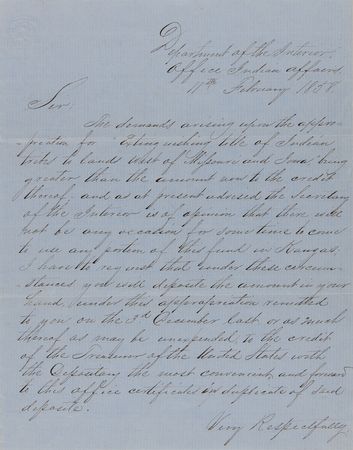 Department of the Interior
Office Indian Affairs
17th February 1858
Sir
The demands arising upon the appro-
-priation for Extinguishing title of Indian
tribes to lands West of Missouri and Iowa being
greater than the amount now to the credit
thereof, and as at present advised the Secretary
of the Interior is of opinion that there will
not be any occasion for some time to come
to use any portion of this fund in Kansas.
I have to request that under these circum-
-stances you will deposite the amount in your
hand, under this appropriation remitted
to you on the 3d December last or as much
thereof as may be unexpended to the credit
of the Treasurer of the United States with
the Depositary the most convenient and forward
to this office certificates in duplicate of said
deposite.
Very Respectfully